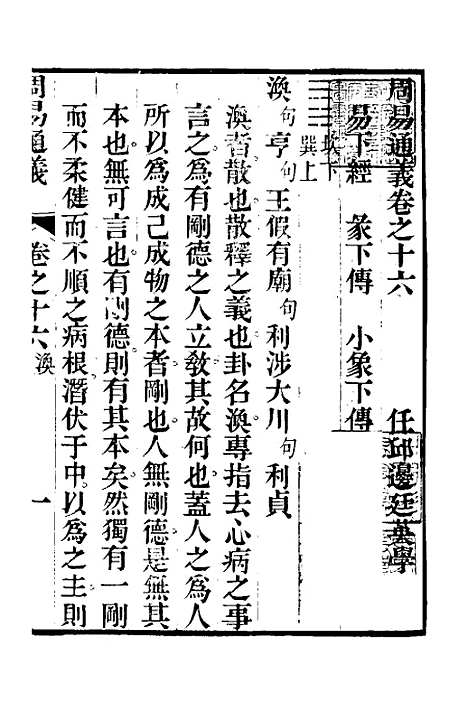 周易通義卷之十六 任邱邊廷英學
易下經 彖下傳 小象下傳
坎下
巽上
渙句亨句王假有廟句利涉大川句利貞
渙者散也散釋之義也卦名渙專指去心病之事
言之為有剛德之人立敎其故何也蓋人之為人
所以為成己成物之本者剛也人無剛德是無其
本也無可言也有剛德則有其本矣然獨有一剛
而不柔健而不順之病根潛伏于中以為之主則
周易通義 卷之十六 渙 一